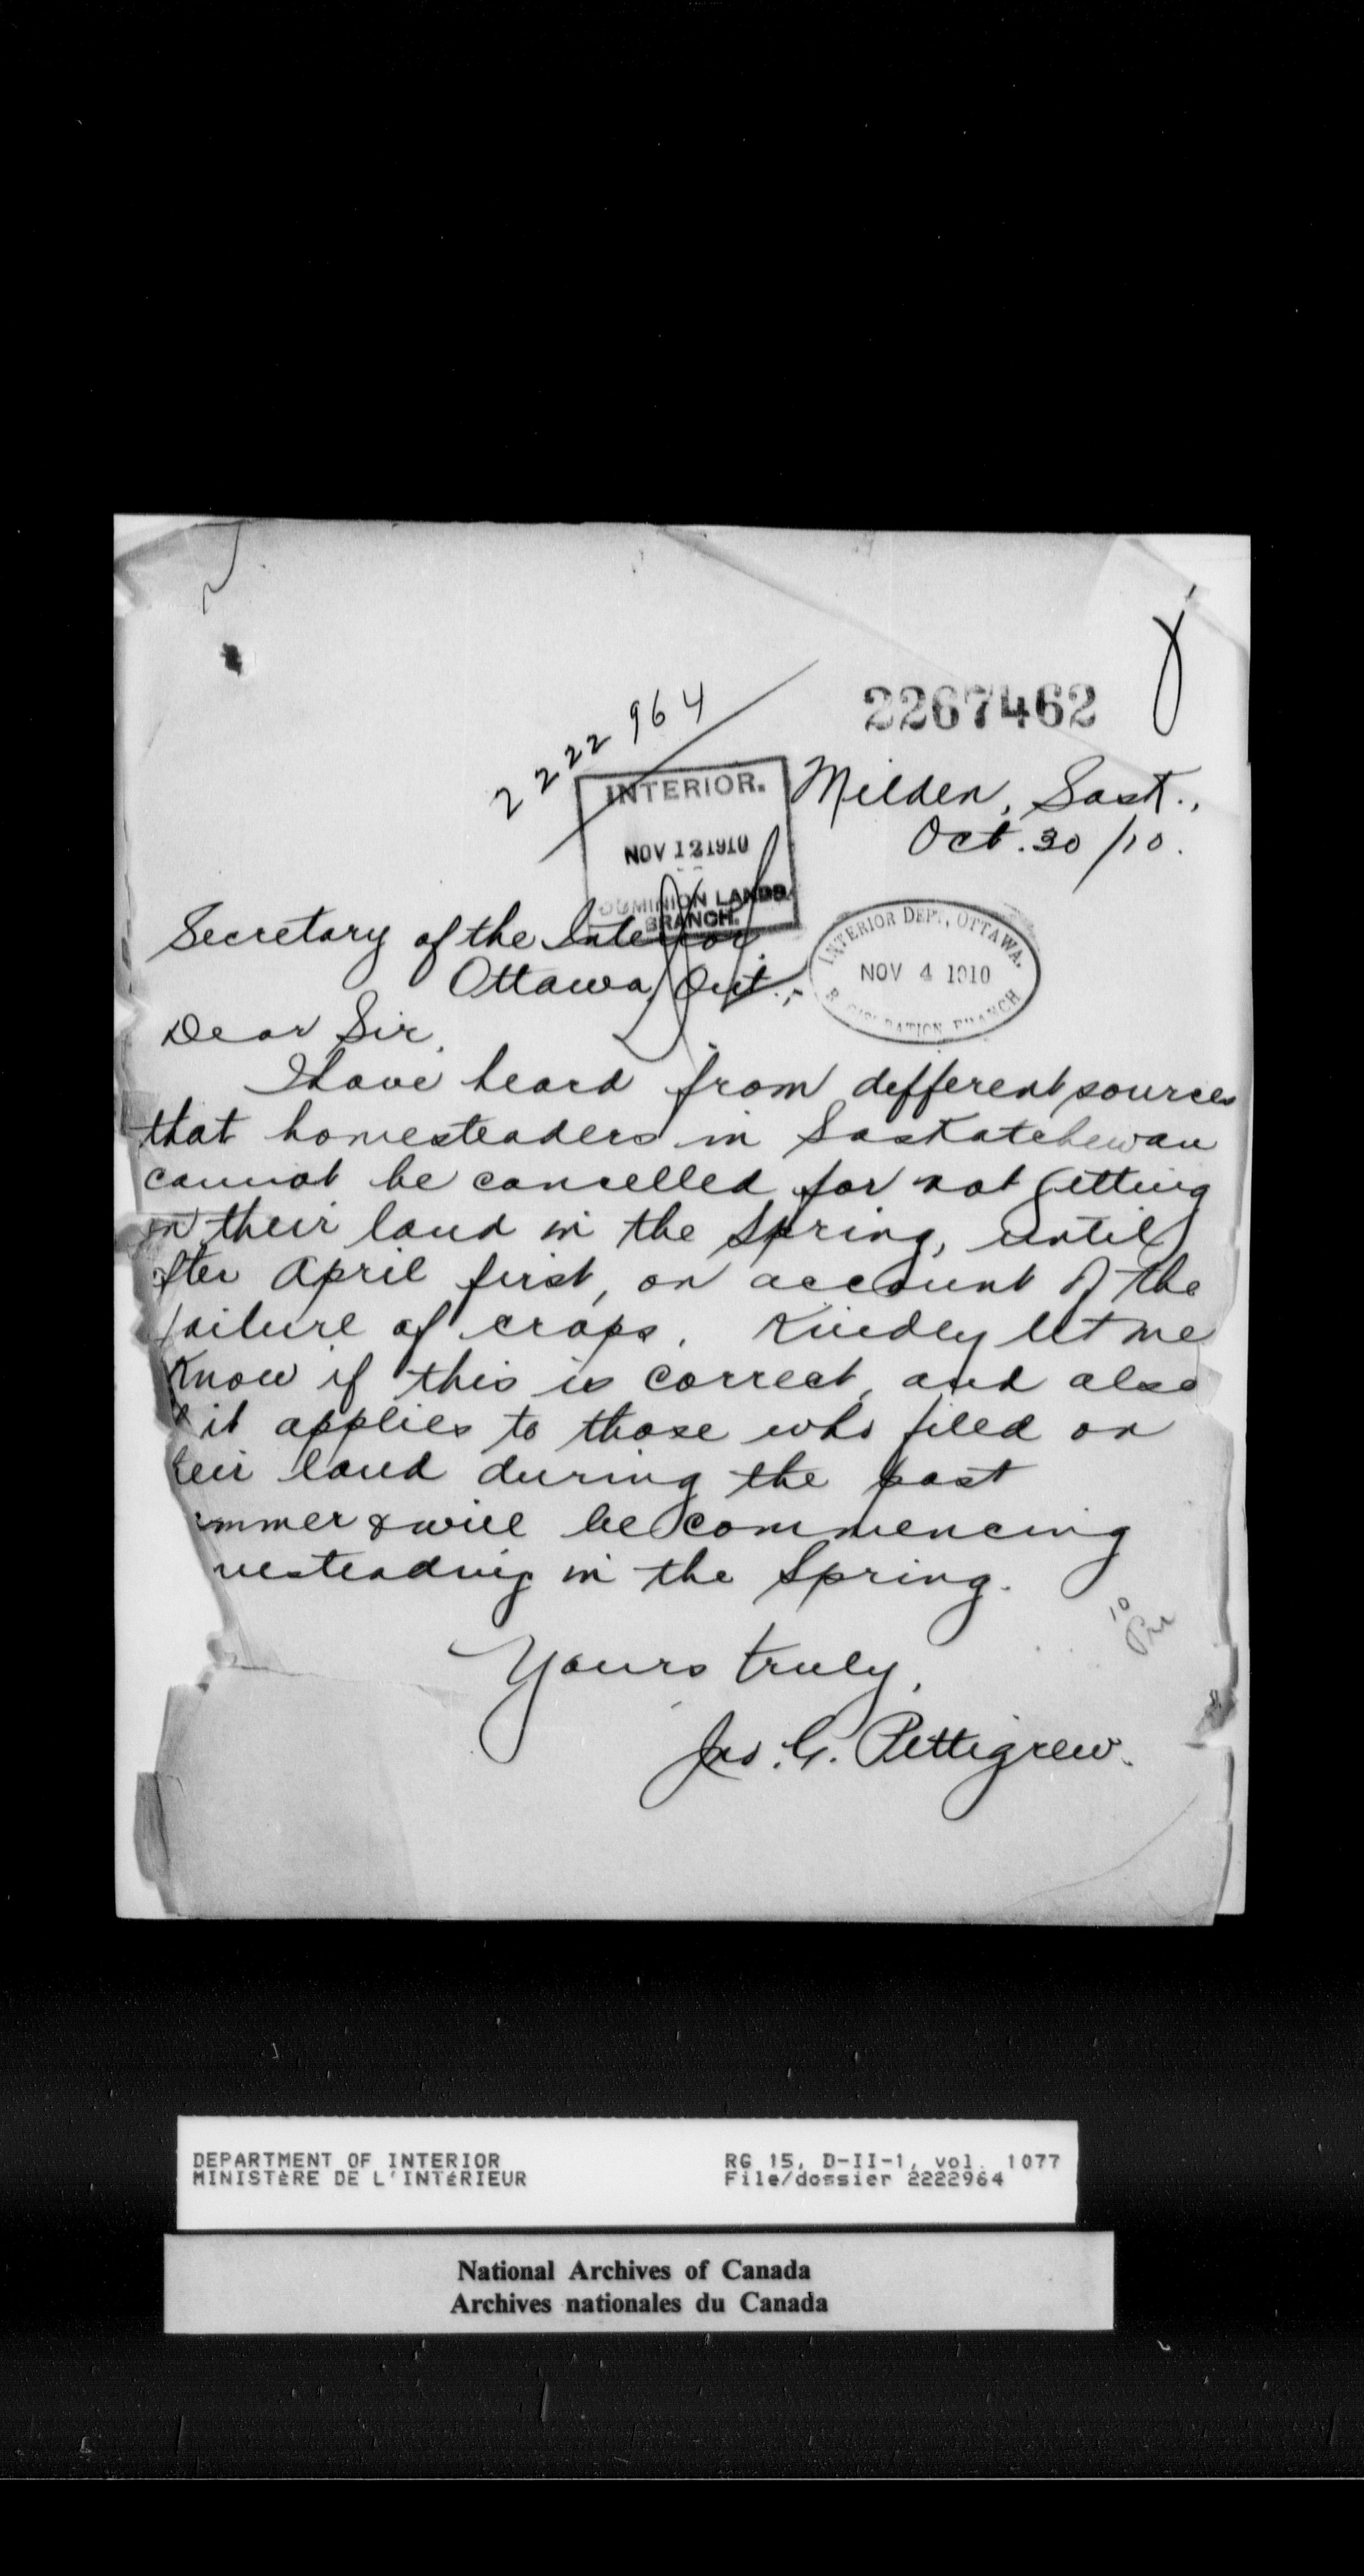 2267462
2222964
INTERIOR.
NOV 12 1910
DOMINION LANDS
BRANCH.
Milden, Sask.,
Oct. 30/10.
INTERIOR DEPT, OTTAWA.
NOV 4 1910
REGISTRATION BRANCH
Secretary of the Interior
Ottawa, Ont.
Dear Sir,
I have heard from different sources
that homesteaders in Saskatchewan
cannot be cancelled for not getting
on their land in the Spring, until
fter April first, on account of the
failure of crops. Kindly let me
know if this is correct, and also
it applies to those who filed on
heir land during the past
mmer & will be commencing
mesteading in the Spring.
10
Yours truly,
Jas. G. Pettigrew.
DEPARTMENT OF INTERIOR
MINISTÈRE DE L'INTÉRIEUR
RG 15, D-II-1, vol. 1077
File/dossier 2222964
National Archives of Canada
Archives nationales du Canada